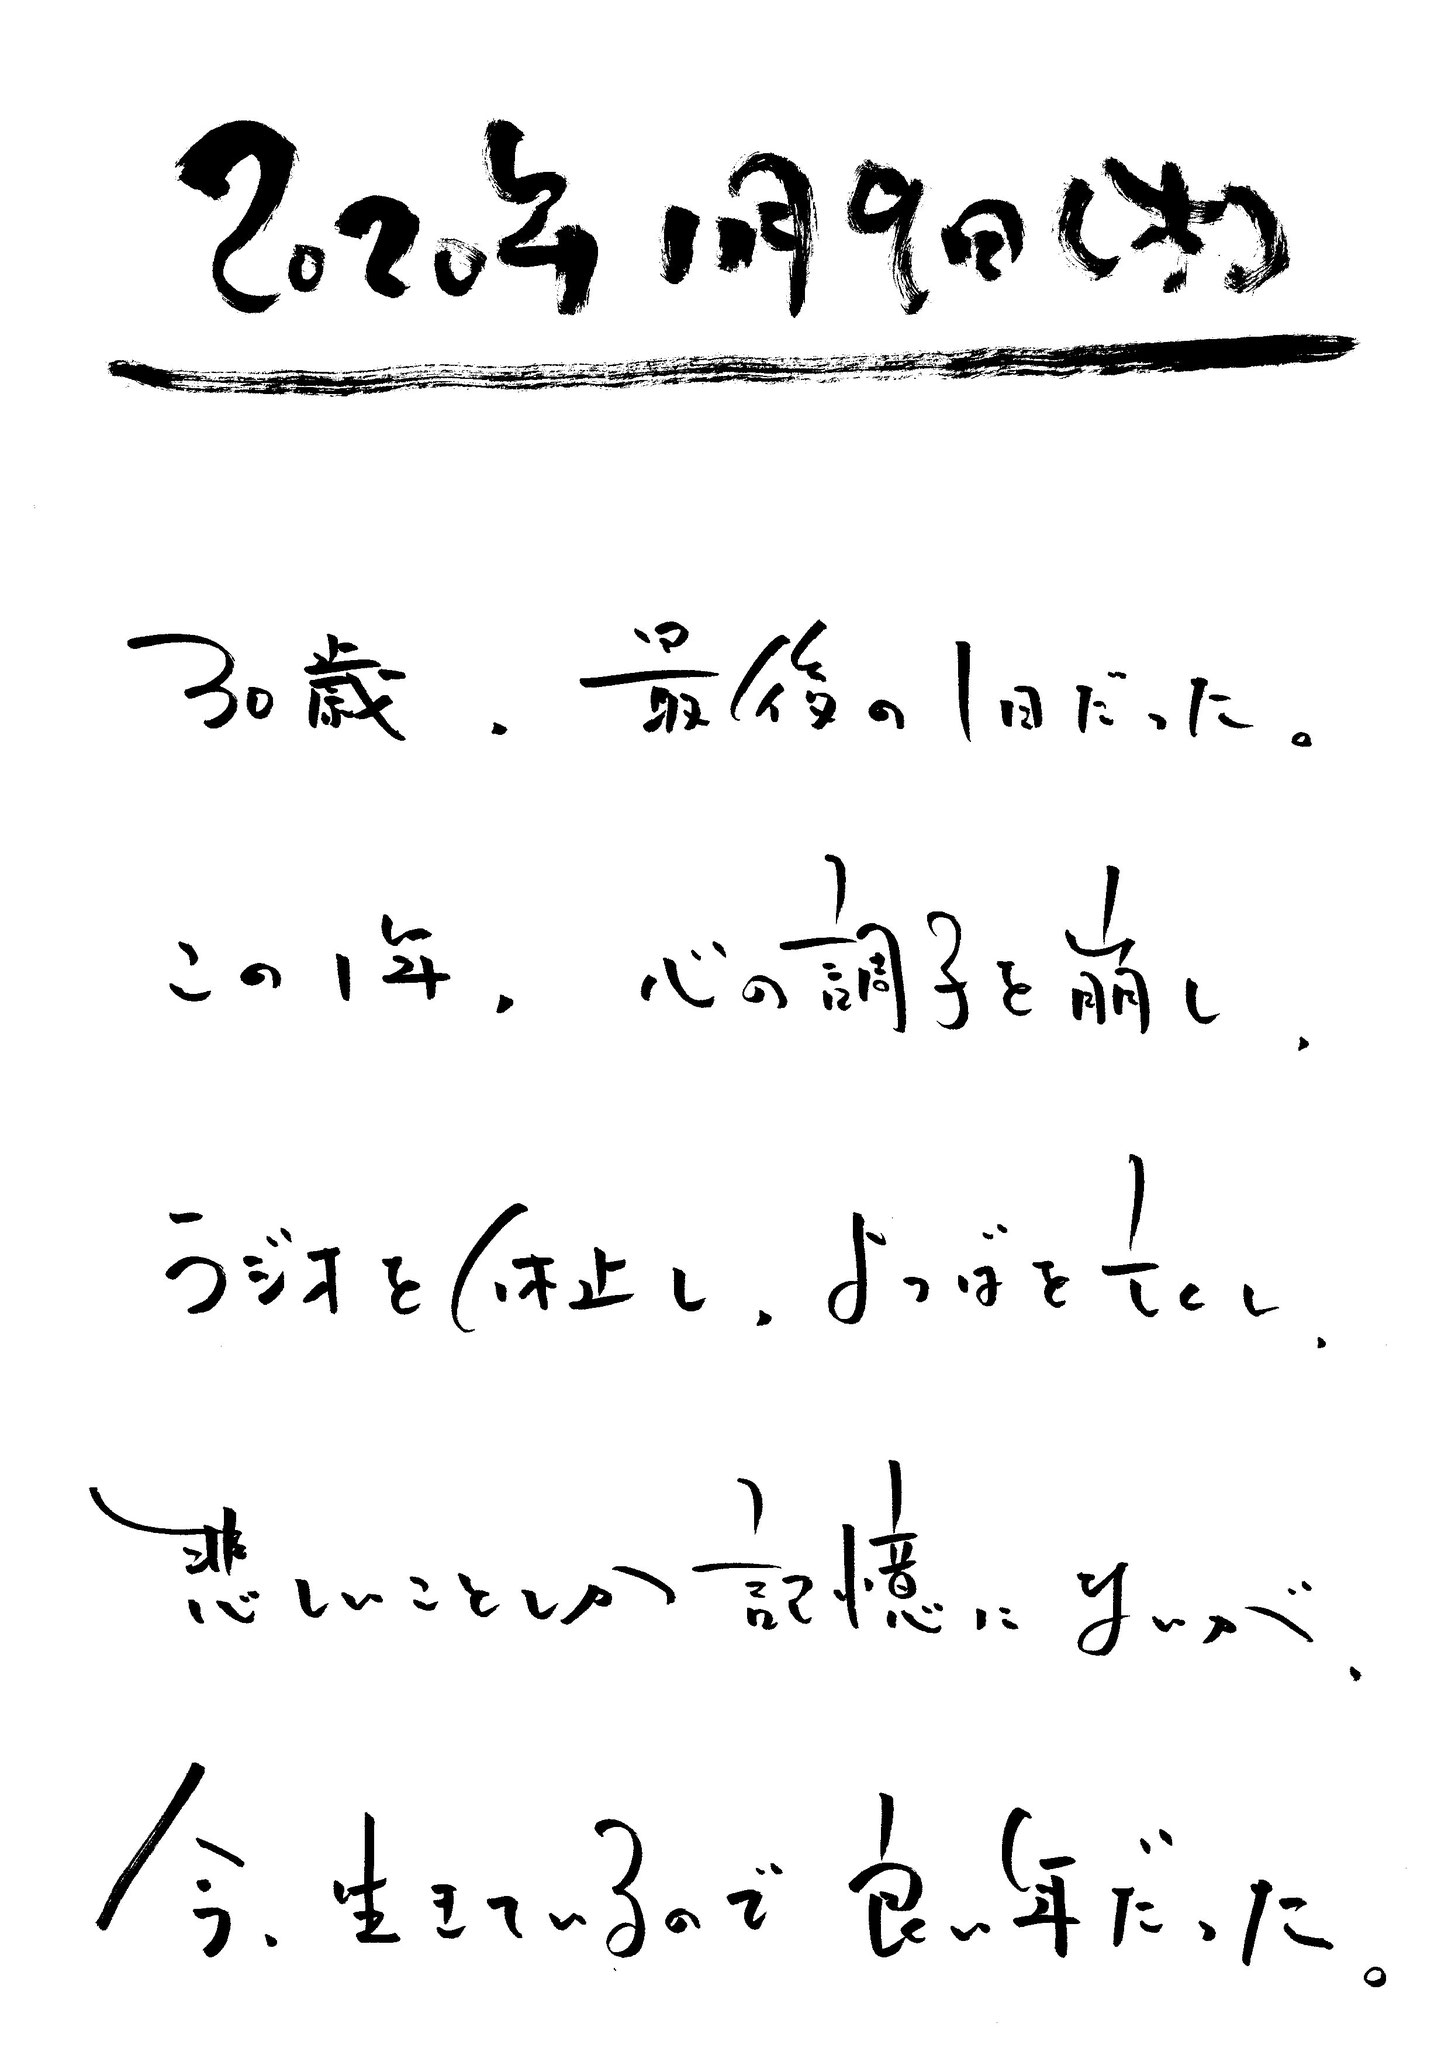 2020年1月9日(木)
30歳、最後の1日だった。
この1年、心の調子を崩し、
ラジオを休止し、よつばを亡くし、
悲しいことしか記憶にないが、
今、生きているので良い年だった。